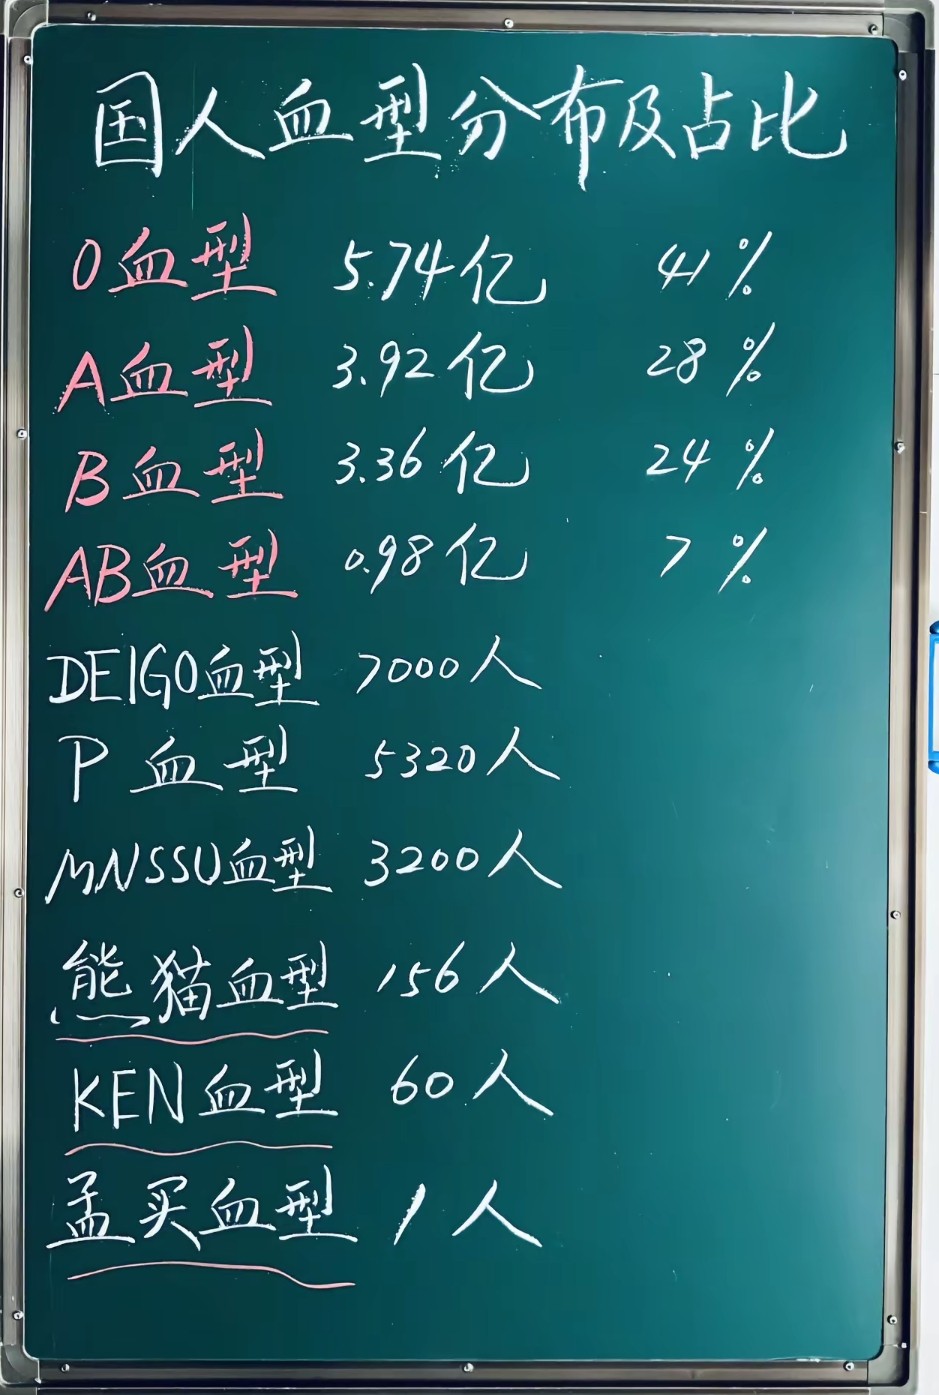 国人血型分布及占比
O血型 5.74亿 41%
A血型 3.92亿 28%
B血型 3.36亿 24%
AB血型 0.98亿 7%
DEIGO血型 7000人
P血型 5320人
MNSSU血型 3200人
熊猫血型 156人
KEN血型 60人
孟买血型 1人